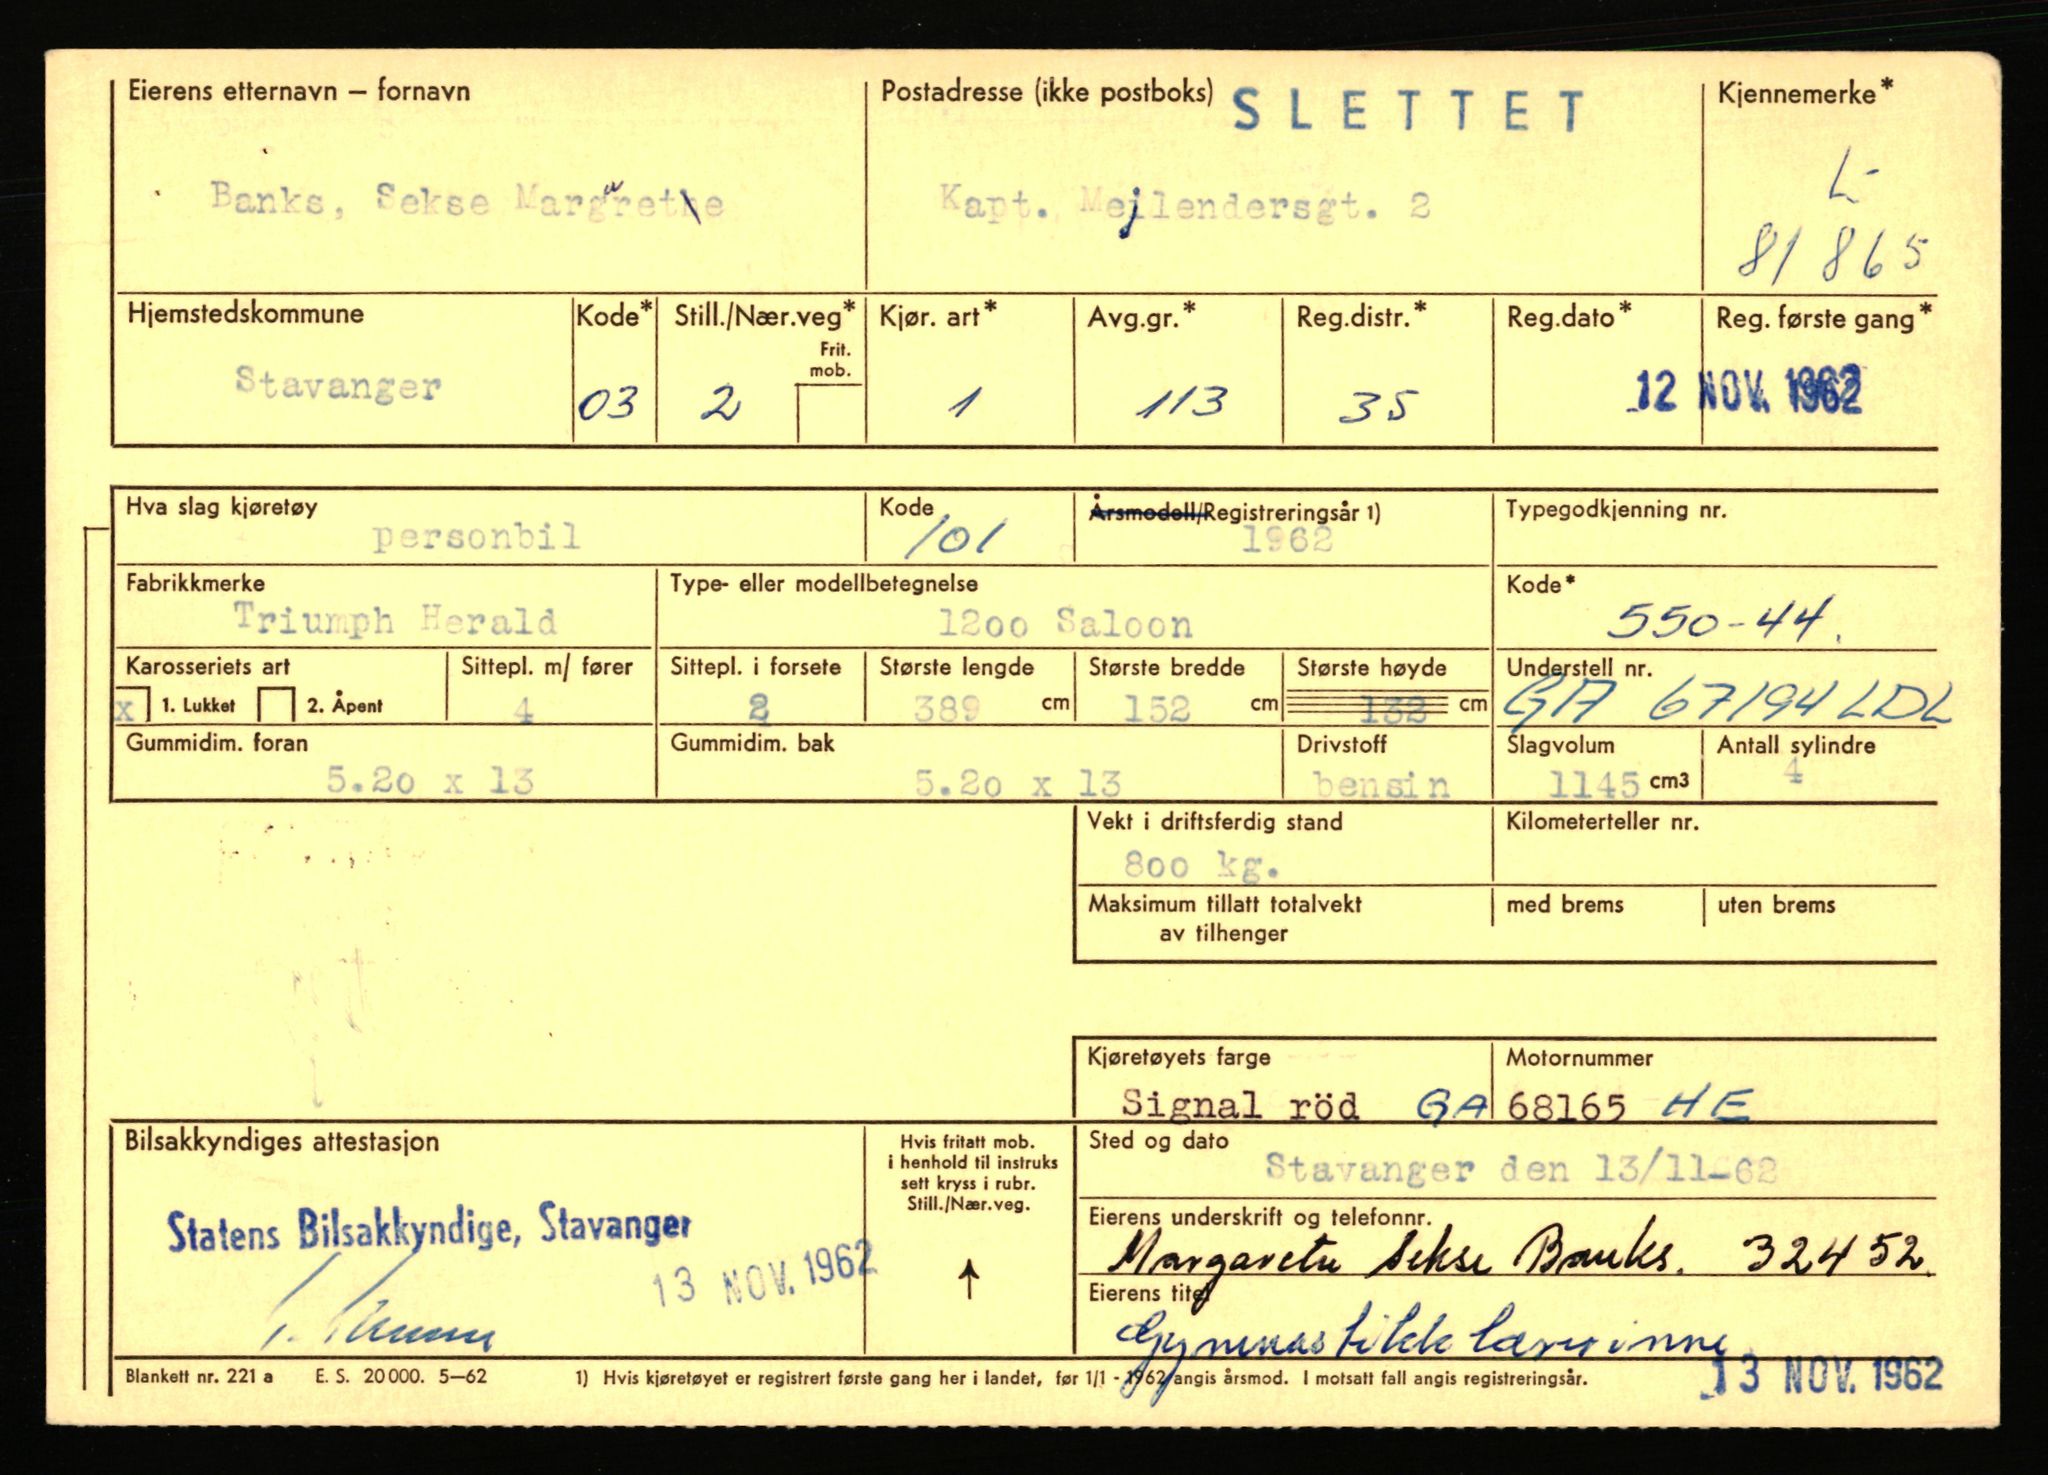 Eierens etternavn — fornavn
Postadresse (ikke postboks)
SLETTET
Kjennemerke*
Banks, Sekse Margarete
Kapt. Mejlendersgt. 2
L-
81865
Hjemstedskommune
Kode*
Still./Nær.veg*
Frit.
mob.
Kjør. art*
Avg.gr.*
Reg.distr.*
Reg.dato*
Reg. første gang*
Stavanger
03
2
1
113
35
12 NOV. 1962
Hva slag kjøretøy
Kode
Årsmodell/Registreringsår 1)
Typegodkjenning nr.
personbil
101
1962
Fabrikkmerke
Type- eller modellbetegnelse
Kode*
Triumph Herald
1200 Saloon
550-44.
Karosseriets art
Sittepl. m/ fører
Sittepl. i forsete
Største lengde
Største bredde
Største høyde
Understell nr.
x 1. Lukket
2. Åpent
4
2
389 cm
152 cm
132 cm
GA 67194 LDL
Gummidim. foran
Gummidim. bak
Drivstoff
Slagvolum
Antall sylindre
5.20 x 13
5.20 x 13
bensin
1145 cm3
4
Vekt i driftsferdig stand
Kilometerteller nr.
800 kg.
Maksimum tillatt totalvekt
av tilhenger
med brems
uten brems
Kjøretøyets farge
Motornummer
Signal röd
GA 68165 HE
Bilsakkyndiges attestasjon
Hvis fritatt mob.
i henhold til instruks
sett kryss i rubr.
Still./Nær.veg.
Sted og dato
Stavanger den 13/11-62
Statens Bilsakkyndige, Stavanger
13 NOV. 1962
Eierens underskrift og telefonnr.
Margarete Sekse Banks. 32452.
Eierens titel
Gymnastikklærerinne
13 NOV. 1962
Blankett nr. 221 a E. S. 20000. 5—62
1) Hvis kjøretøyet er registrert første gang her i landet, før 1/1 - 1962 angis årsmod. I motsatt fall angis registreringsår.